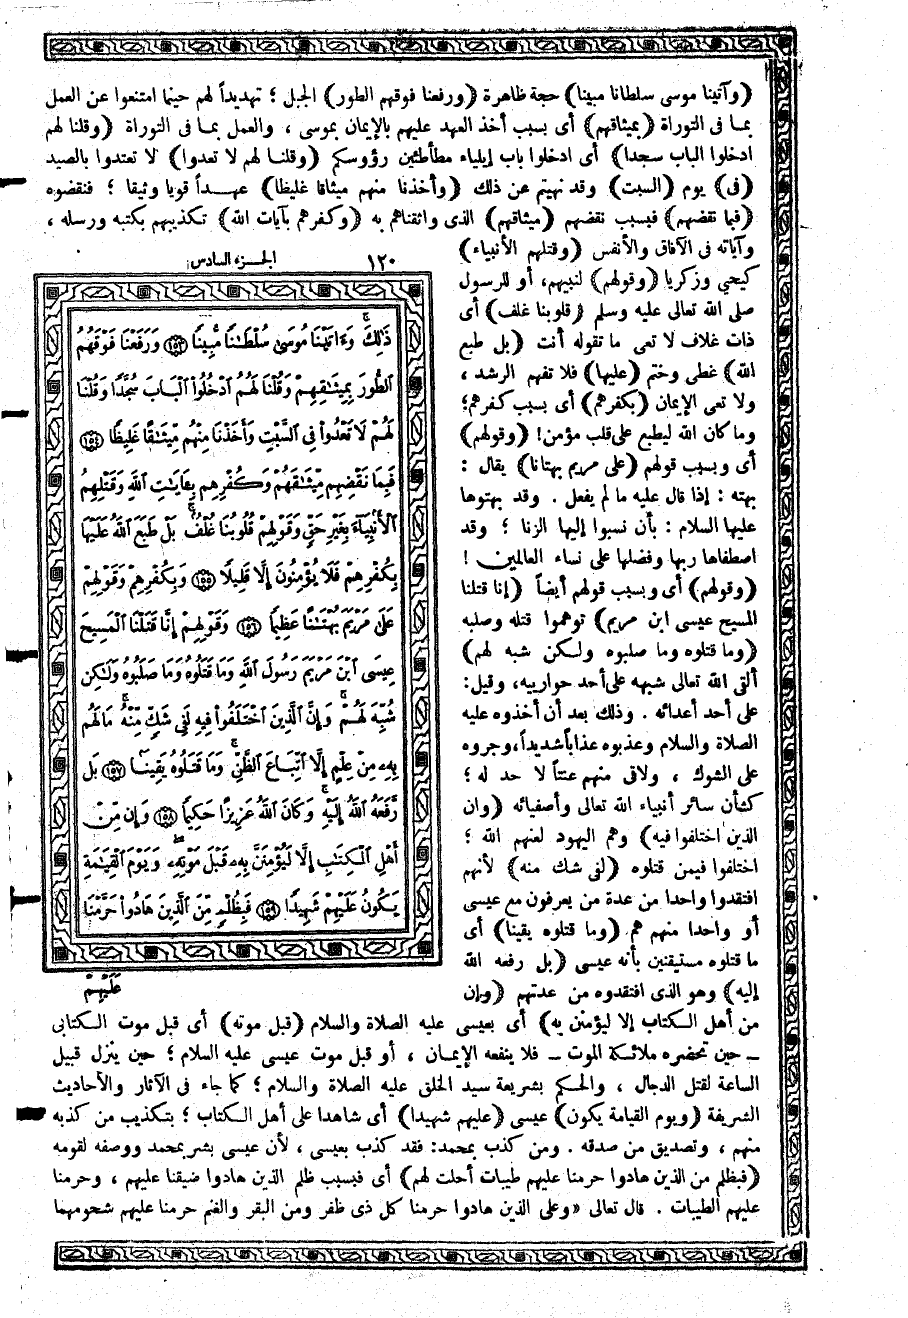 (وآتينا موسى سلطانا مبينا) حجة ظاهرة (ورفعنا فوقهم الطور) الجبل ؛ تهديداً لهم حينما امتنعوا عن العمل
بما فى التوراة (بميثاقهم) أى بسبب أخذ العهد عليهم بالإيمان بموسى ، والعمل بما فى التوراة (وقلنا لهم
ادخلوا الباب سجدا) أى ادخلوا باب إيلياء مطأطئين رؤوسكم (وقلنا لهم لا تعدوا) لا تعتدوا بالصيد
(فى) يوم (السبت) وقد نهيتم عن ذلك (وأخذنا منهم ميثاقا غليظا) عهداً قويا وثيقا ؛ فنقضوه
(فبما نقضهم) فبسبب نقضهم (ميثاقهم) الذى واثقناهم به (وكفرهم بآيات الله) تكذيبهم بكتبه ورسله ،
وآياته فى الآفاق والأنفس (وقتلهم الأنبياء)
كيحيى وزكريا (وقولهم) لنبيهم، أو للرسول
صلى الله تعالى عليه وسلم (قلوبنا غلف) أى
ذات غلاف لا تعى ما تقوله أنت (بل طبع
الله) غطى وختم (عليها) فلا تفهم الرشد ،
ولا تعى الإيمان (بكفرهم) أى بسبب كفرهم؛
وما كان الله ليطبع على قلب مؤمن! (وقولهم)
أى وبسبب قولهم (على مريم بهتانا) يقال :
بهته : إذا قال عليه ما لم يفعل . وقد بهتوها
عليها السلام : بأن نسبوا إليها الزنا ؛ وقد
اصطفاها ربها وفضلها على نساء العالمين !
(وقولهم) أى وبسبب قولهم أيضاً (إنا قتلنا
المسيح عيسى ابن مريم) توهموا قتله وصلبه
(وما قتلوه وما صلبوه ولكن شبه لهم)
ألقى الله تعالى شبهه على أحد حوارييه، وقيل:
على أحد أعدائه . وذلك بعد أن أخذوه عليه
الصلاة والسلام وعذبوه عذاباً شديداً، وجروه
على الشوك ، ولاقى منهم عنتاً لا حد له ؛
كشأن سائر أنبياء الله تعالى وأصفيائه (وإن
الذين اختلفوا فيه) وهم اليهود لعنهم الله ؛
اختلفوا فيمن قتلوه (لفى شك منه) لأنهم
افتقدوا واحدا من عدة من يعرفون مع عيسى
أو واحدا منهم هم (وما قتلوه يقينا) أى
ما قتلوه مستيقنين بأنه عيسى (بل رفعه الله
إليه) وهو الذى افتقدوه من عدتهم (وإن
الجزء السادس
١٢٠
ذَٰلِكَ وَءَاتَيْنَا مُوسَىٰ سُلْطَٰنًا مُّبِينًا (١٥٣) وَرَفَعْنَا فَوْقَهُمُ
ٱلطُّورَ بِمِيثَٰقِهِمْ وَقُلْنَا لَهُمُ ٱدْخُلُوا۟ ٱلْبَابَ سُجَّدًا وَقُلْنَا
لَهُمْ لَا تَعْدُوا۟ فِى ٱلسَّبْتِ وَأَخَذْنَا مِنْهُم مِّيثَٰقًا غَلِيظًا (١٥٤)
فَبِمَا نَقْضِهِم مِّيثَٰقَهُمْ وَكُفْرِهِم بِـَٔايَٰتِ ٱللَّهِ وَقَتْلِهِمُ
ٱلْأَنۢبِيَآءَ بِغَيْرِ حَقٍّ وَقَوْلِهِمْ قُلُوبُنَا غُلْفٌۢ ۚ بَلْ طَبَعَ ٱللَّهُ عَلَيْهَا
بِكُفْرِهِمْ فَلَا يُؤْمِنُونَ إِلَّا قَلِيلًا (١٥٥) وَبِكُفْرِهِمْ وَقَوْلِهِمْ
عَلَىٰ مَرْيَمَ بُهْتَٰنًا عَظِيمًا (١٥٦) وَقَوْلِهِمْ إِنَّا قَتَلْنَا ٱلْمَسِيحَ
عِيسَى ٱبْنَ مَرْيَمَ رَسُولَ ٱللَّهِ وَمَا قَتَلُوهُ وَمَا صَلَبُوهُ وَلَٰكِن
شُبِّهَ لَهُمْ ۚ وَإِنَّ ٱلَّذِينَ ٱخْتَلَفُوا۟ فِيهِ لَفِى شَكٍّ مِّنْهُ ۚ مَا لَهُم
بِهِۦ مِنْ عِلْمٍ إِلَّا ٱتِّبَاعَ ٱلظَّنِّ ۚ وَمَا قَتَلُوهُ يَقِينًۢا (١٥٧) بَل
رَّفَعَهُ ٱللَّهُ إِلَيْهِ ۚ وَكَانَ ٱللَّهُ عَزِيزًا حَكِيمًا (١٥٨) وَإِن مِّنْ
أَهْلِ ٱلْكِتَٰبِ إِلَّا لَيُؤْمِنَنَّ بِهِۦ قَبْلَ مَوْتِهِۦ ۖ وَيَوْمَ ٱلْقِيَٰمَةِ
يَكُونُ عَلَيْهِمْ شَهِيدًا (١٥٩) فَبِظُلْمٍ مِّنَ ٱلَّذِينَ هَادُوا۟ حَرَّمْنَا
عَلَيْهِمْ
من أهل الكتاب إلا ليؤمنن به) أى بعيسى عليه الصلاة والسلام (قبل موته) أى قبل موت الكتابى
ــ حين تحضره ملائكة الموت ــ فلا ينفعه الإيمان ، أو قبل موت عيسى عليه السلام ؛ حين ينزل قبيل
الساعة لقتل الدجال ، والحكم بشريعة سيد الخلق عليه الصلاة والسلام ؛ كما جاء فى الآثار والأحاديث
الشريفة (ويوم القيامة يكون) عيسى (عليهم شهيدا) أى شاهدا على أهل الكتاب ؛ بتكذيب من كذبه
منهم ، وتصديق من صدقه . ومن كذب بمحمد: فقد كذب بعيسى ، لأن عيسى بشر بمحمد ووصفه لقومه
(فبظلم من الذين هادوا حرمنا عليهم طيبات أحلت لهم) أى فبسبب ظلم الذين هادوا ضيقنا عليهم ، وحرمنا
عليهم الطيبات . قال تعالى «وعلى الذين هادوا حرمنا كل ذى ظفر ومن البقر والغنم حرمنا عليهم شحومهما